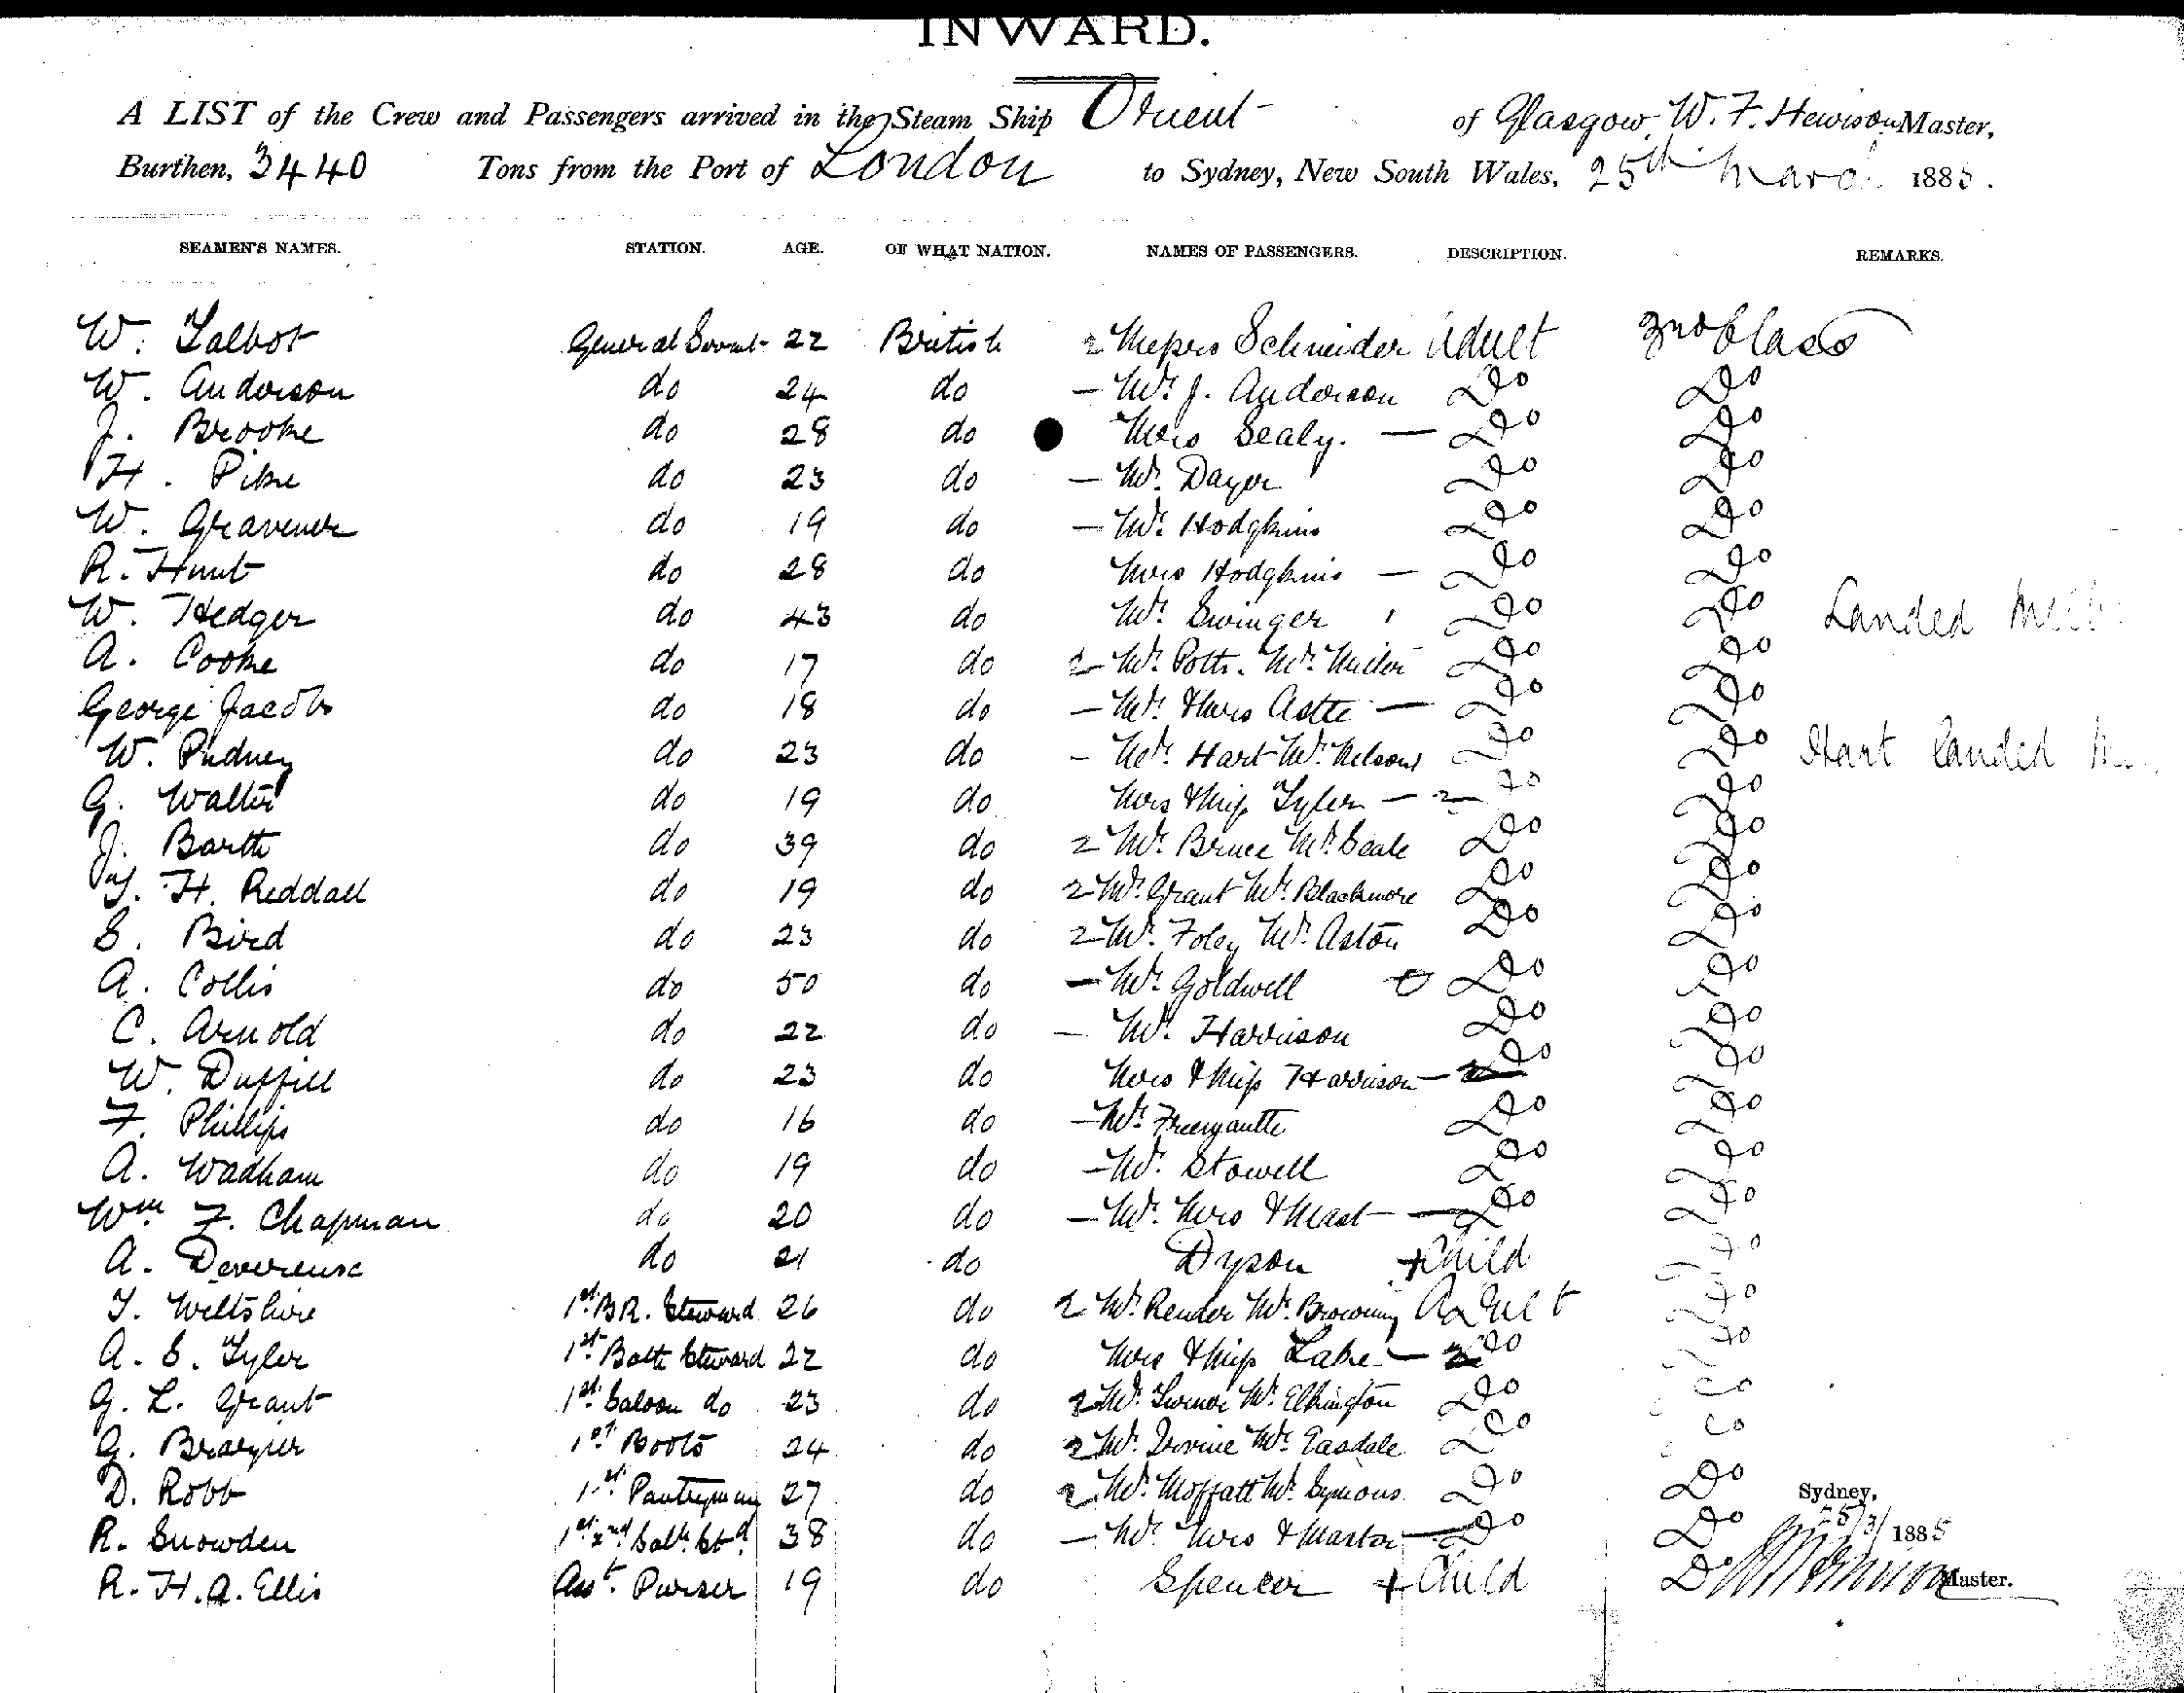 INWARD.
A LIST of the Crew and Passengers arrived in the Steam Ship Orient of Glasgow, W. F. Hewison Master,
Burthen, 3440 Tons from the Port of London to Sydney, New South Wales, 25th March 1885.
SEAMEN'S NAMES. STATION. AGE. OF WHAT NATION. NAMES OF PASSENGERS. DESCRIPTION. REMARKS.
W. Talbot General Servt 22 British 2 Messrs Schneider Adult 2nd Class
W. Anderson do 24 do — Mr. J. Anderson Do Do
J. Brooke do 28 do Mrs Sealy. — Do Do
H. Pike do 23 do — Mr. Dayer Do Do
W. Gravener do 19 do — Mr. Hodgkins Do Do
R. Hunt do 28 do Mrs Hodgkins — Do Do
W. Hedger do 43 do Mr. Swinger Do Do Landed
A. Cooke do 17 do 2 Mr. Potts. Mr. Do Do
George Jacobs do 18 do — Mr. & Mrs Astte — Do Do
W. Pudney do 23 do - Mr. Hart Mr. Nelson Do Do Hart landed
G. Walter do 19 do Mrs & Miss Tyler — 2 do Do
J. Barth do 39 do 2 Mr. Bruce Mr. Seale Do Do
T. H. Reddall do 19 do 2 Mr. Grant Mr. Blackmore Do Do
S. Bird do 23 do 2 Mr. Foley Mr. Aston Do Do
A. Collis do 50 do — Mr. Goldwell Do Do
C. Arnold do 22 do — Mr. Harrison Do Do
W. Duffill do 23 do Mrs & Miss Harrison — Do Do
F. Phillips do 16 do — Mr. Freemantle Do Do
A. Wadham do 19 do — Mr. Stowell Do Do
Wm. F. Chapman do 20 do — Mr. Mrs & Mast — Do Do
A. Devereux do 21 do Dyson + Child Do
T. Wiltshire 1st B.R. Steward 26 do 2 Mr. Render Mr. Browning Adult Do
A. S. Tyler 1st Bath Steward 22 do Mrs & Miss Lake — do Do
G. L. Grant 1st Saloon do 23 do 2 Mr. Mr. Elkington Do Do
G. 1st Boots 24 do 2 Mr. Irvine Mr. Easdale Do Do
D. Robb 1st Pantryman 27 do 2 Mr. Moffatt Mr. Symons Do Do
R. Snowden 1st 2nd Std. 38 do — Mr. Mrs & Master — Do Do
R. H. A. Ellis Asst. Purser 19 do Spencer + Child Do
Sydney,
25/3/1885
Master.